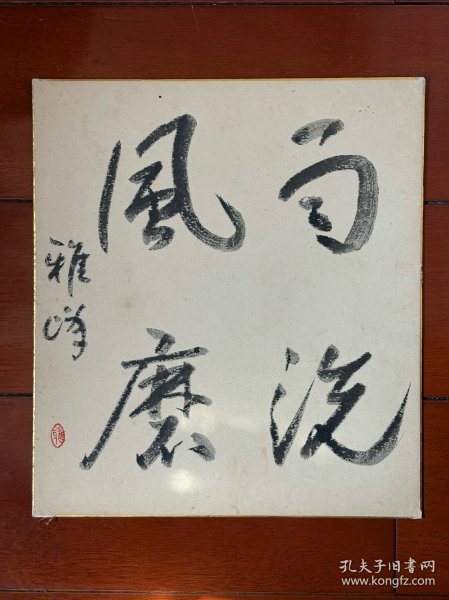 雨洗
風磨
雅峰
孔夫子旧书网
www.kongfz.com